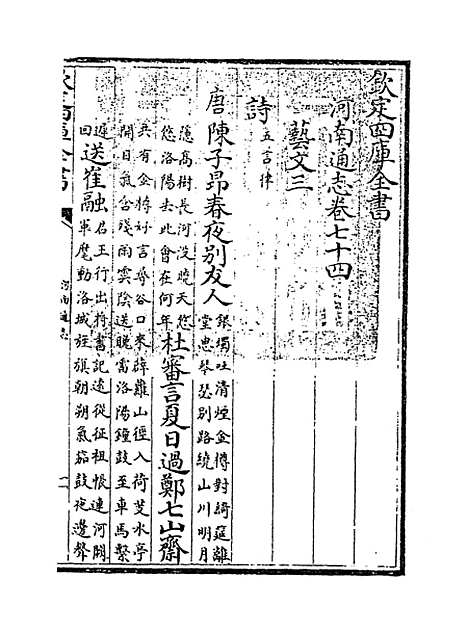 欽定四庫全書
河南通志卷七十四
藝文三
詩五言律
唐陳子昂春夜别友人銀燭吐清煙金樽對綺筵離
堂思琴瑟别路繞山川明月
隱高樹長河没曉天悠
悠洛陽去此會在何年杜審言夏日過鄭七山齋
共有金樽好言尋谷口來薜蘿山徑入荷芰水亭
開日氣含殘雨雲陰送晚雷洛陽鐘鼓至車馬繫
遲
回送崔融君王行出將書記遠從征祖帳連河闕
軍麾動洛城旌旗朝朔氣笳鼓夜邊聲